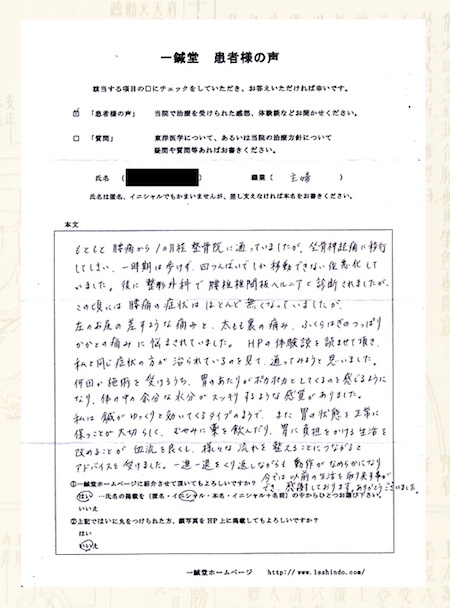 一鍼堂 患者様の声
該当する項目の□にチェックをしていただき、お答えいただければ幸いです。
☑ 「患者様の声」 当院で治療を受けられた感想、体験談などお聞かせください。
□ 「質問」 東洋医学について、あるいは当院の治療方針について
疑問や質問等あればお書きください。
氏名 ( ) 職業 ( 主婦 )
氏名は匿名、イニシャルでもかまいませんが、差し支えなければ本名をお書きください。
本文
もともと 腰痛から 1カ月程 整骨院に通っていましたが、坐骨神経痛に移行
してしまい、一時期は歩けず、四つんばいでしか移動できない位悪化して
いました。後に 整形外科で 腰椎椎間板ヘルニアと診断されましたが、
この頃には 腰痛の症状は ほとんど無くなっていましたが、
左のお尻の差すような痛みと、太もも裏の痛み、ふくらはぎのつっぱり
かかとの痛みに 悩まされていました。 HPの体験談を読ませて頂き、
私と同じ症状の方が 治られているのを見て、通ってみようと思いました。
何回か施術を受けるうち、胃のあたりがポカポカとしてくるのを感じるように
なり、体の中の余分な水分がスッキリするような感覚がありました。
私は鍼がゆっくりと効いてくるタイプのようで、また 胃の状態を正常に
保つことが大切らしく、むやみに薬を飲んだり、胃に負担をかける生活を
改めることが 血流を良くし、様々な流れを整えることにつながると
アドバイスを受けました。一進一退をくり返しながらも 動作がなめらかになり
今では以前の生活を取り戻す事が
でき、感謝しております。ありがとうございました。
①一鍼堂ホームページに紹介させて頂いてもよろしいですか？
はい ―氏名の掲載を（匿名・イニシャル・本名・イニシャル＋名前）の中からひとつお選び下さい。
いいえ
②上記ではいに丸をつけられた方、顔写真をHP上に掲載してもよろしいですか？
はい
いいえ
一鍼堂ホームページ http://www.1sshindo.com/